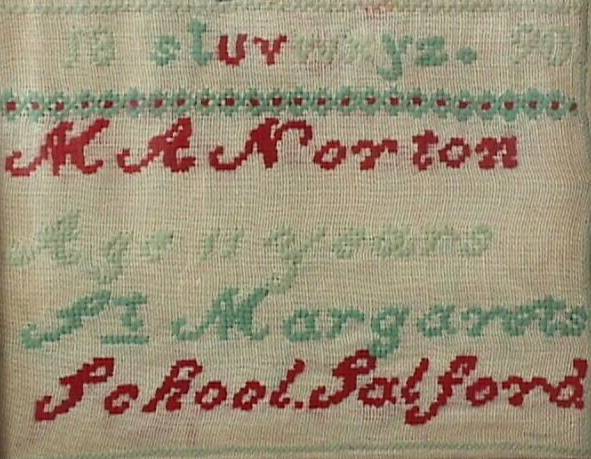 18 stuvwxyz. 90
M A Norton
Age 11 years
St Margarets
School. Salford